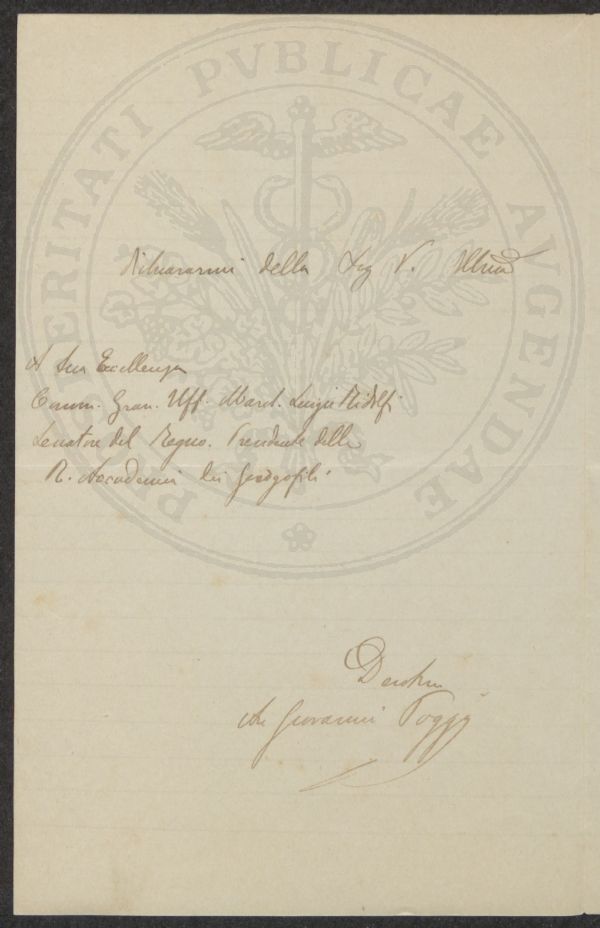 PROSPERITATI PVBLICAE AVGENDAE
della Sig V. Illma
A Sua Eccellenza
Comm. Gran. Uff. March. Luigi Ridolfi
Senatore del Regno. Presidente della
R. Accademia dei Georgofili
Devotmo
Giovanni Poggi